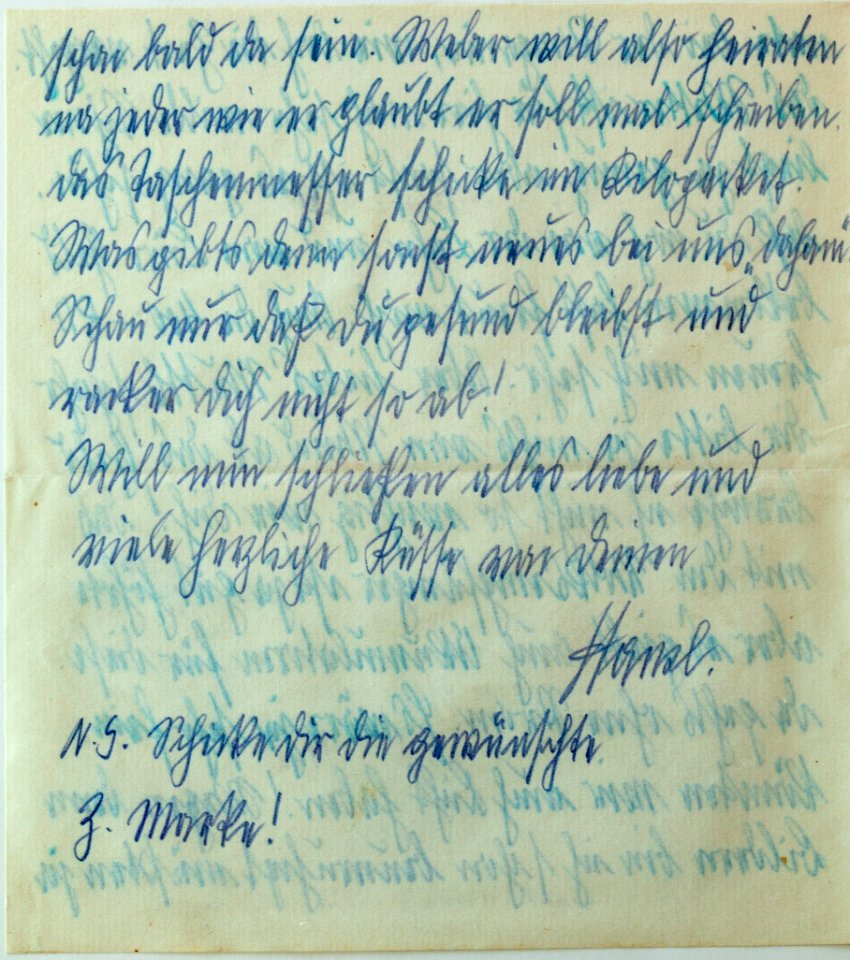 schon bald da sein. Weber will also heiraten
na jeder wie er glaubt er soll mal schreiben.
das Taschenmesser schicke im Kilopacket.
Was gibts denn sonst neues bei uns „daham“
Schau nur daß du gesund bleibst und
racker dich nicht so ab!
Will nun schließen alles liebe und
viele herzliche Küsse von deinen
Pawl.
N.S. Schicke dir die gewünschte
Z. Marke!